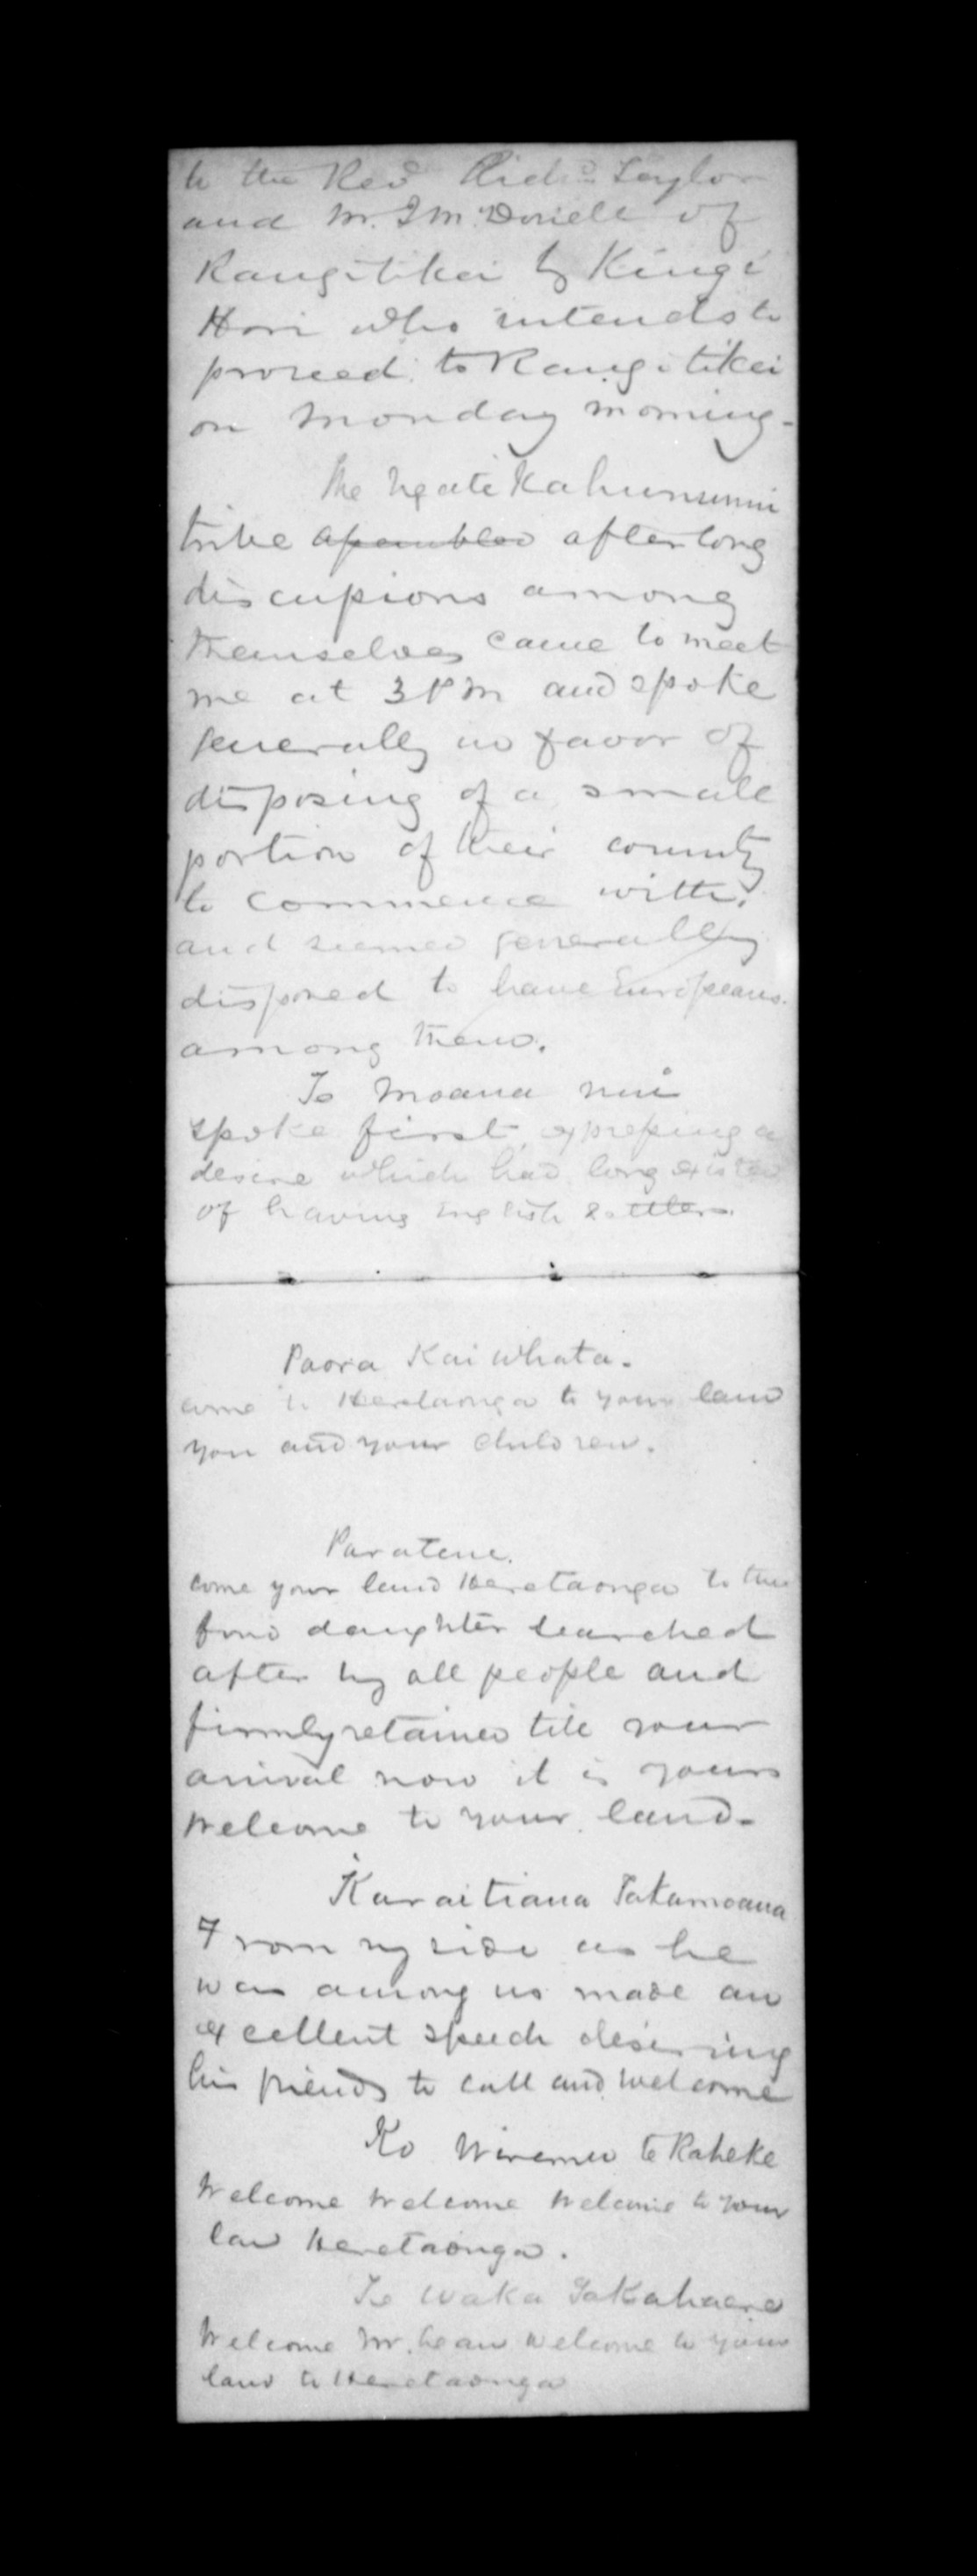 to the Revd Richd Taylor
and Mr. J M. Donell of
Rangitikei by Kingi
Hori who intends to
proceed to Rangitikei
on Monday morning -
The Ngati Kahununui
tribe assembled after long
discussions among
themselves came to meet
me at 3 P M and spoke
generally in favor of
disposing of a small
portion of their country
to commence with,
and seemed generally
disposed to have Europeans
among them.
Te Moana nui
spoke first, expressing a
desire which had long existed
of having English settlers.
Paora Kai whata.
come to Heretaonga to your land
you and your children.
Paratene.
come your land Heretaonga to the
fond daughter searched
after by all people and
firmly retained till your
arrival now it is yours
welcome to your land -
Karaitiana Takamoana
From my side as he
was among us made an
excellent speech desiring
his friends to call and welcome
Ko Wiremu te Raheke
Welcome Welcome Welcome to your
land Heretaonga.
Te Waka Takahaere
Welcome Mr. Lean welcome to your
land to Heretaonga